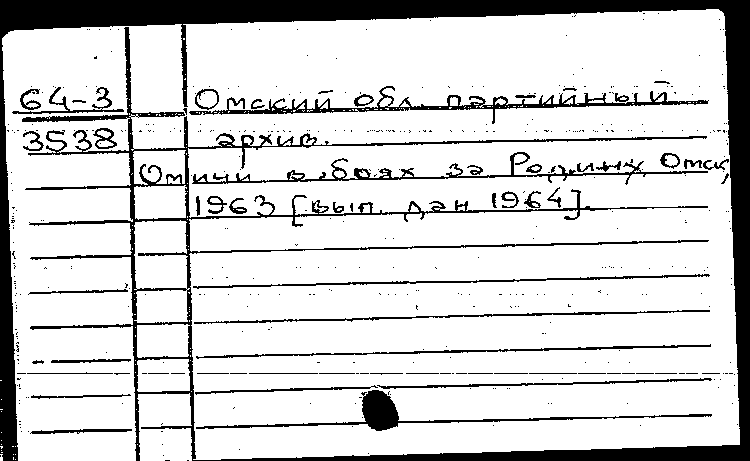 64-3 Омский обл. партийный
3538 архив.
Омичи в боях за Родину Омск,
1963 [вып. дан 1964].